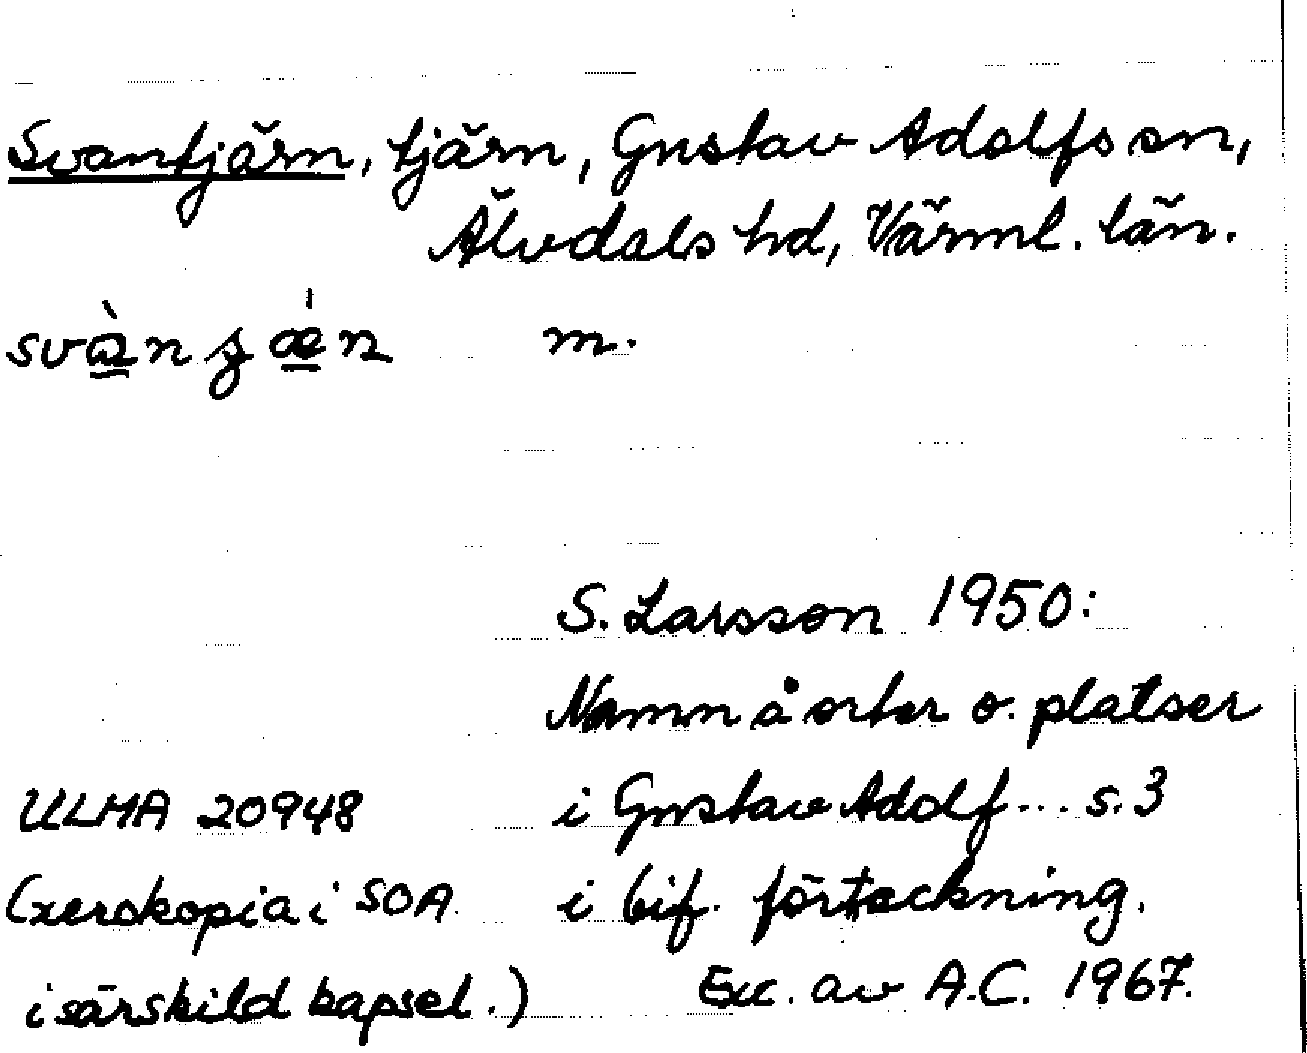 Svantjärn, tjärn, Gustav Adolfs sn,
Älvdals hd, Värml. län.
m.
S. Larsson 1950:
Namn å orter o. platser
ULMA 20948 i Gustav Adolf... s. 3
(xerokopia i SOA i bif. förteckning.
i särskild kapsel.) Exc. av A.C. 1967.